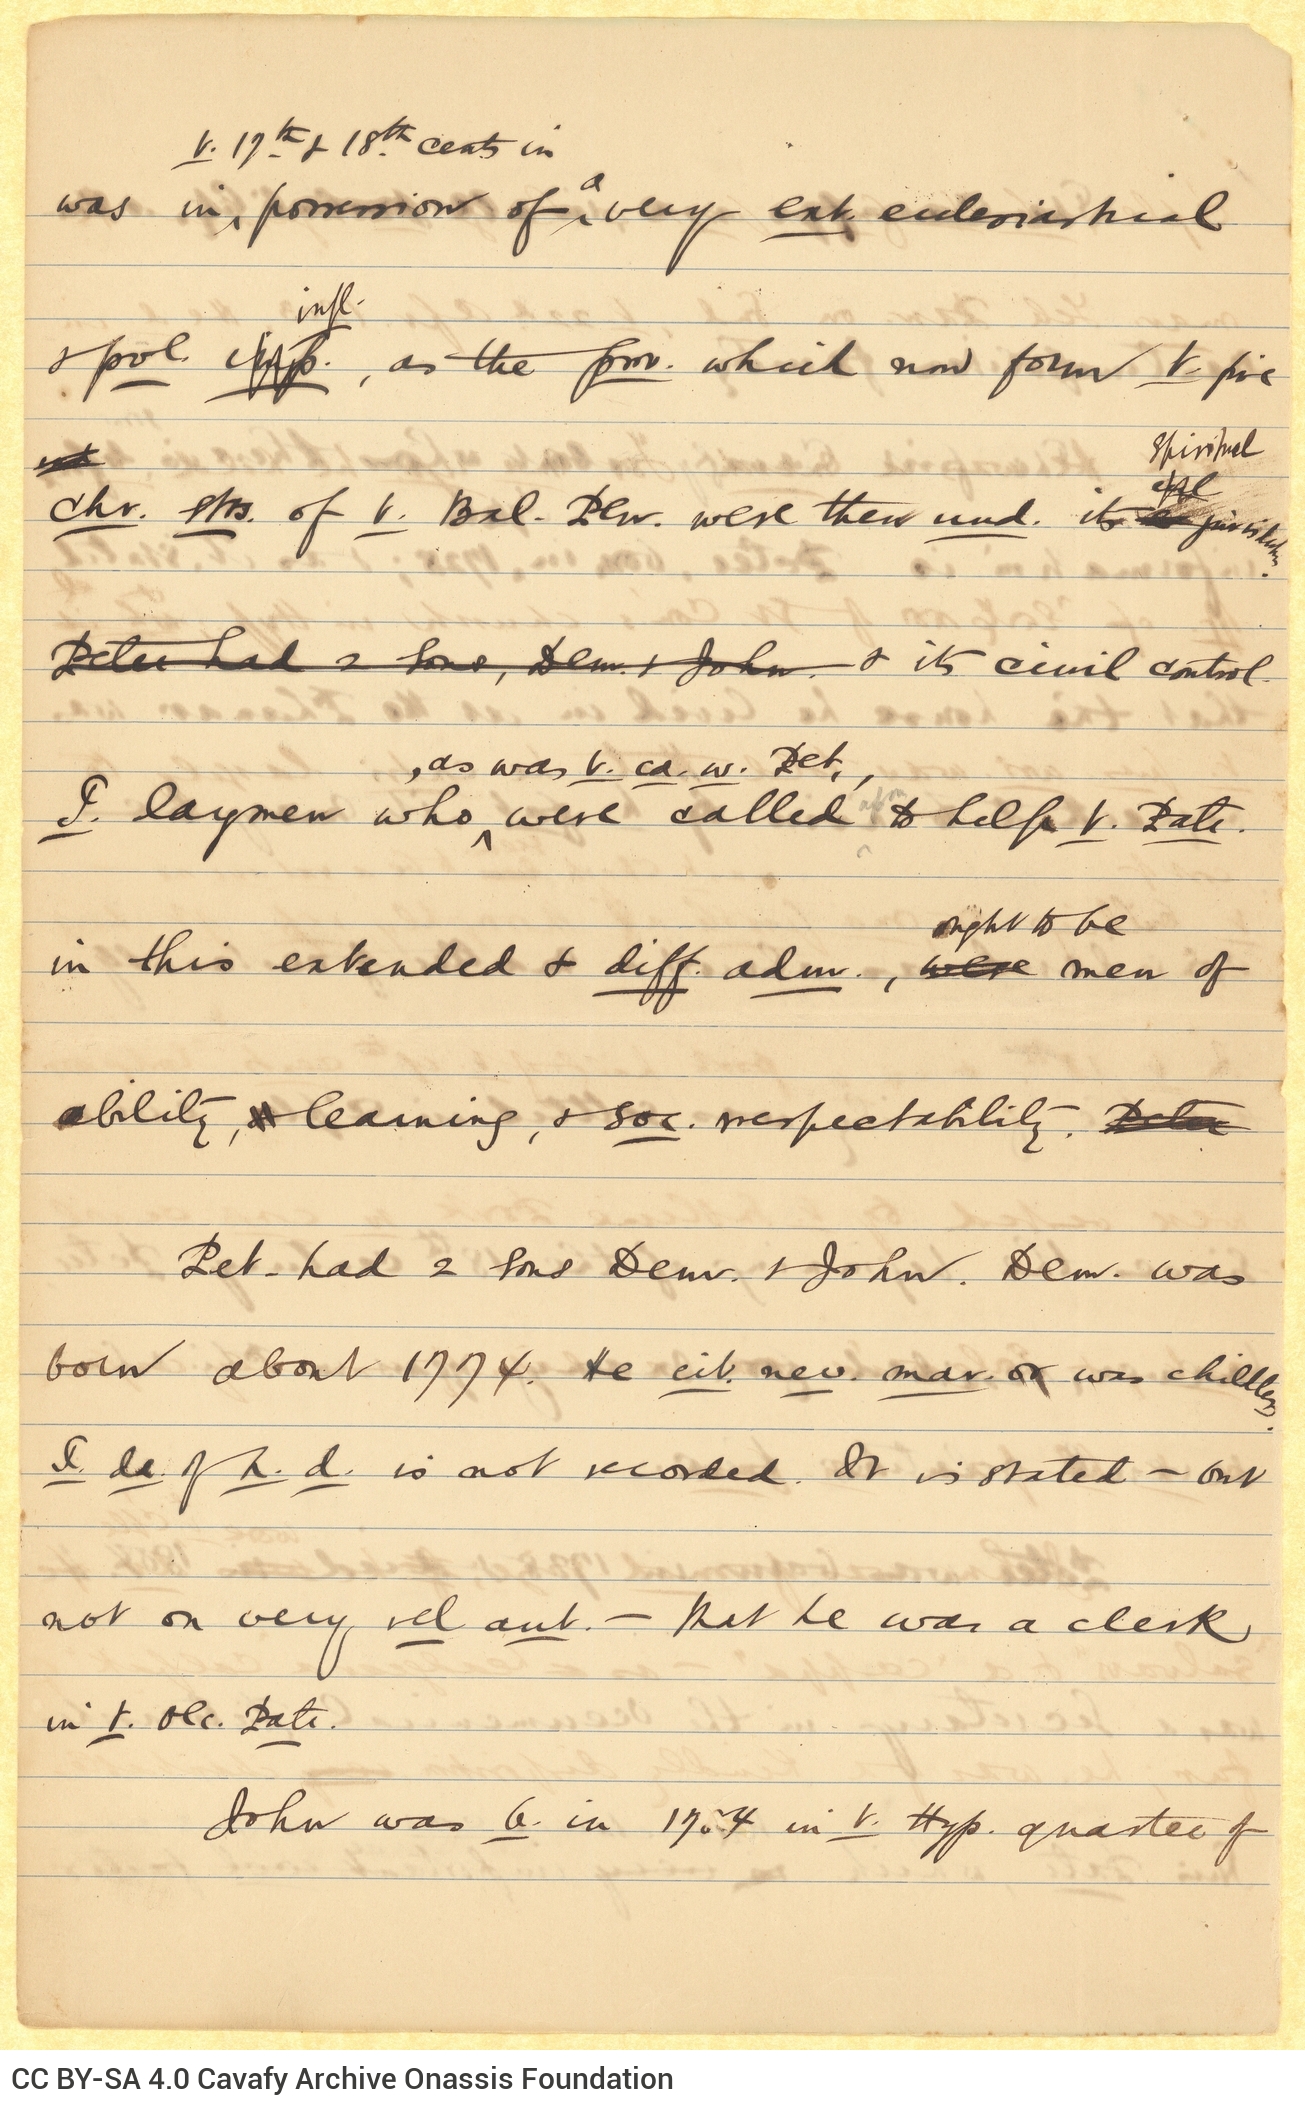 t. 17th & 18th cents in
was in, possession of a very ext. ecclesiastical
infl.
& pol. imp., as the prov. which now form t. five
Chr. sts. of t. Bal. Pen. were then und. its jurisdiction.
spiritual
Peter had 2 sons, Dem. & John. & its civil control.
, as was t. ca. w. Pet.,
T. laymen who were called upon to help t. Patr.
ought to be
in this extended & diff. adm., were men of
ability, & learning, & soc. respectability. Peter
Pet. had 2 sons Dem. & John. Dem. was
born about 1774. He eit. nev. mar. or was childless.
T. da. of h. d. is not recorded. It is stated — but
not on very rel aut. — that he was a clerk
in t. Oec. Patr.
John was b. in in t. Hyp. quarter of
CC BY-SA 4.0 Cavafy Archive Onassis Foundation